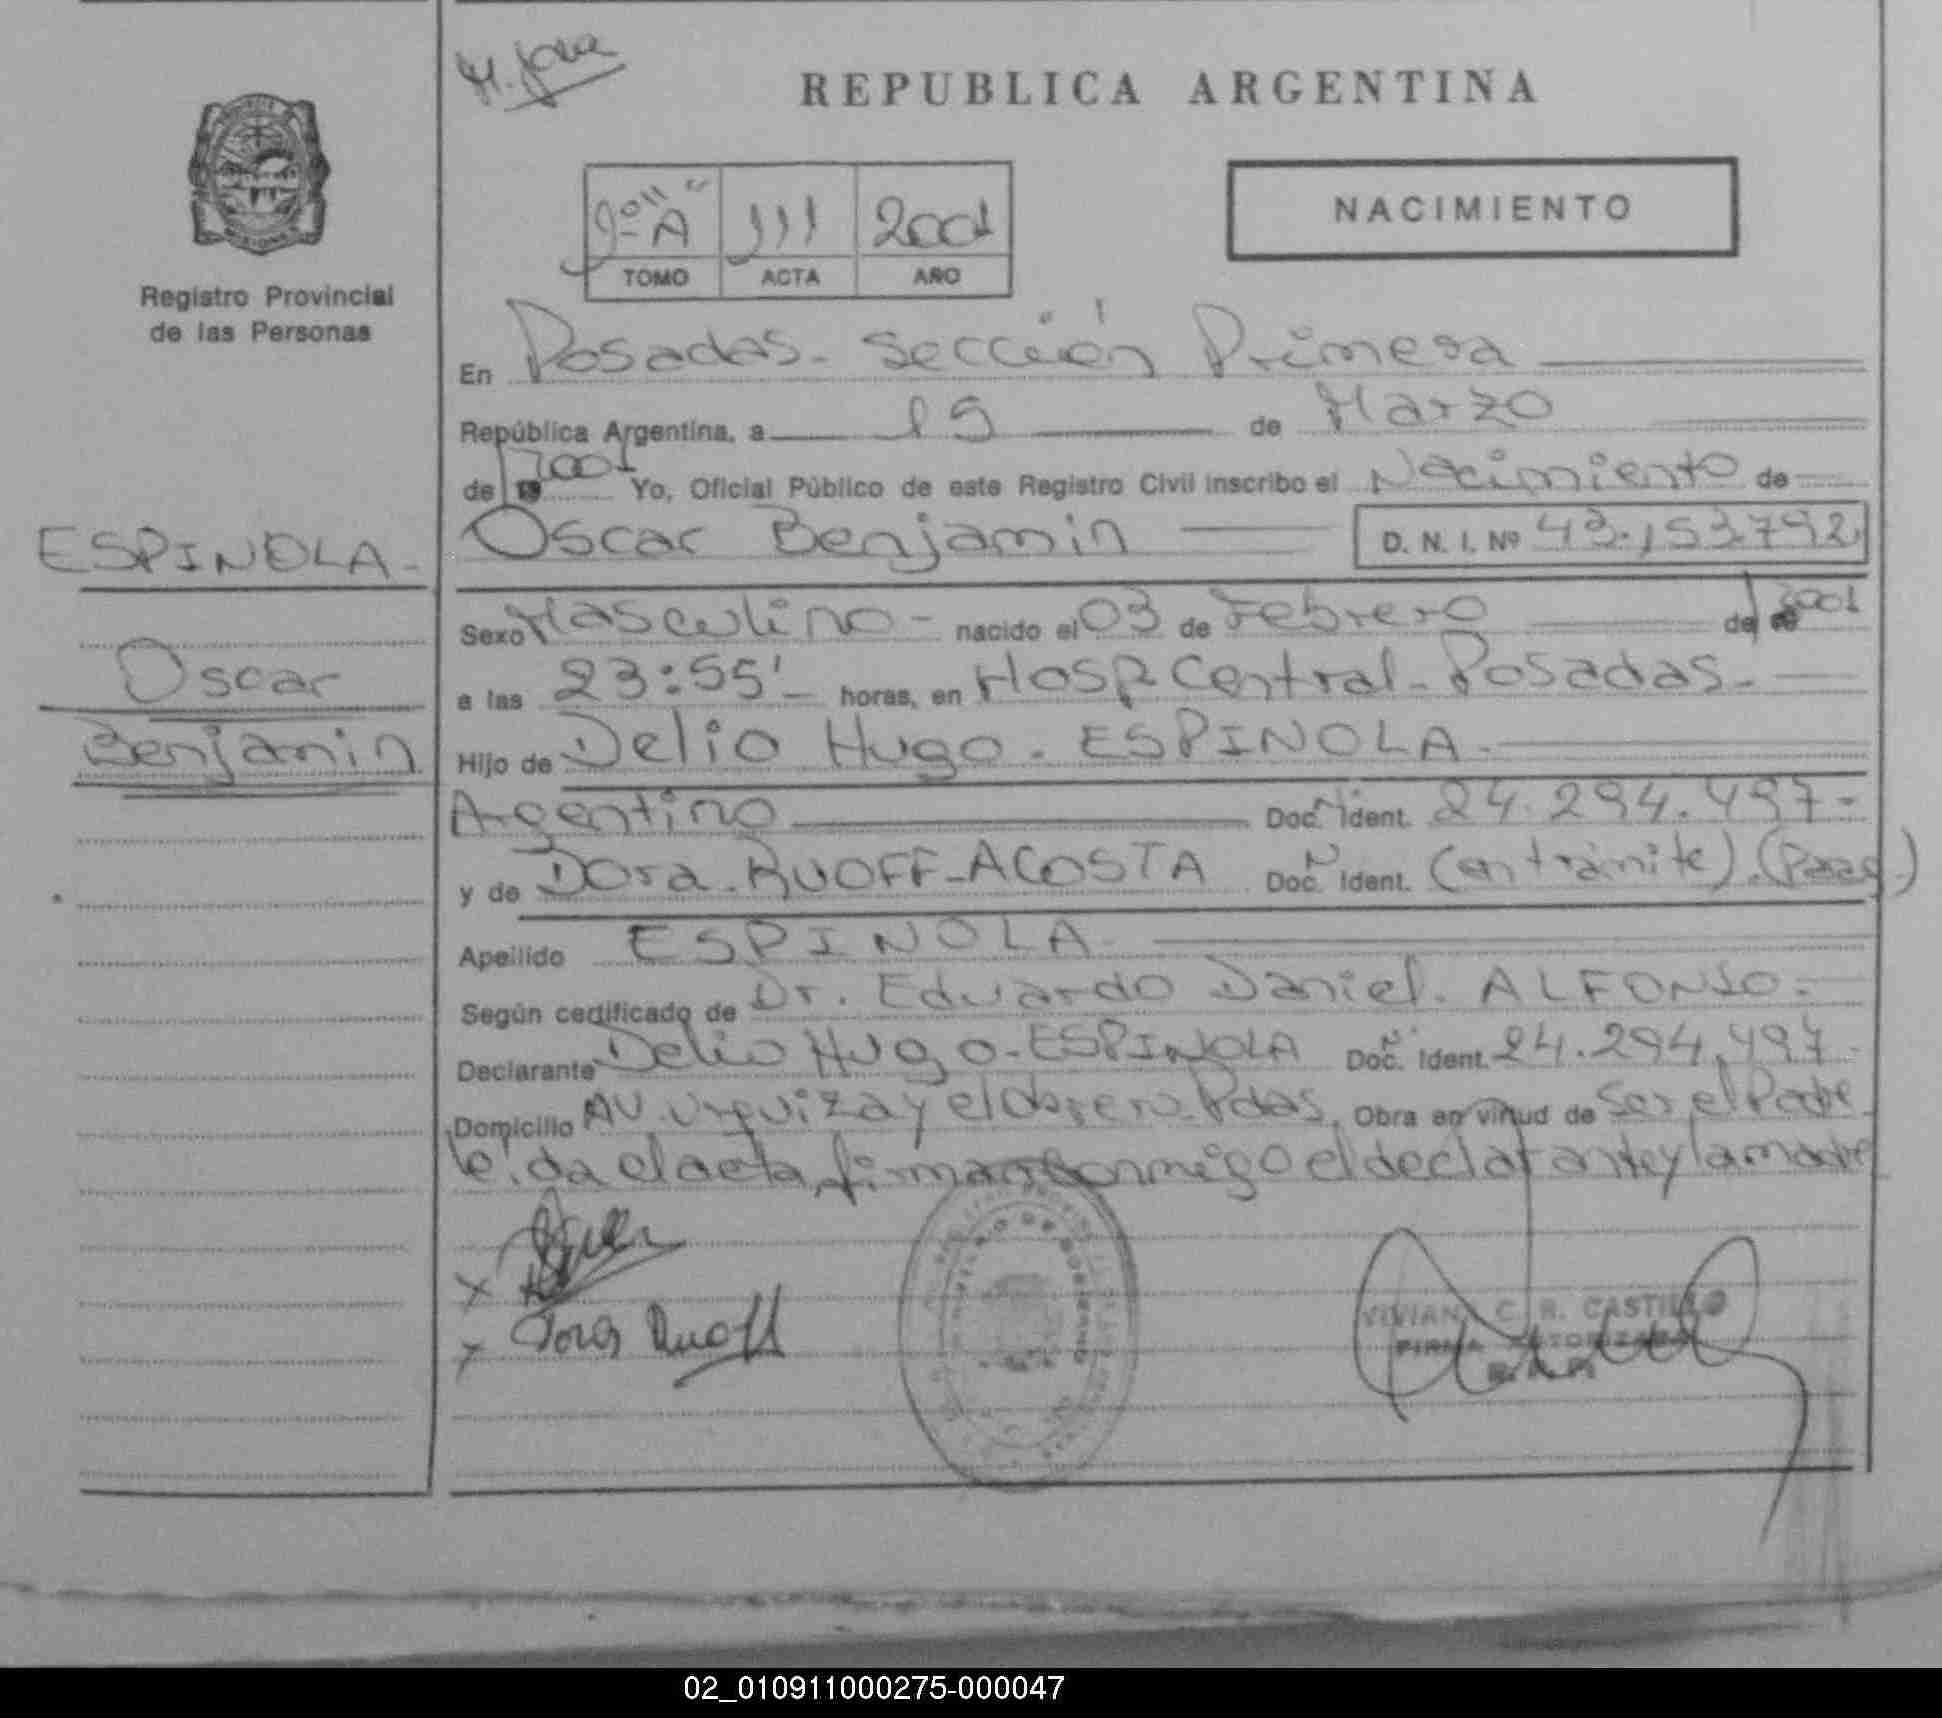 M. Jara
REPUBLICA ARGENTINA
1º "A" 111 2001
TOMO ACTA AÑO
NACIMIENTO
Registro Provincial
de las Personas
En Posadas - Sección Primera
República Argentina, a 15 de Marzo
de 2001 Yo, Oficial Público de este Registro Civil inscribo el Nacimiento de
Oscar Benjamin D. N. I. Nº 43.153.792
ESPINOLA -
Oscar
Benjamin
Sexo Masculino - nacido el 03 de Febrero de 2001
a las 23:55' - horas, en Hosp Central - Posadas -
Hijo de Delio Hugo - ESPINOLA -
Argentino Doc. Ident. 24.294.497 -
y de Dora - RUOFF - ACOSTA Doc. Ident. (en trámite) . (Parag.)
Apellido ESPINOLA -
Según certificado de Dr. Eduardo Daniel - ALFONSO -
Declarante Delio Hugo - ESPINOLA Doc. Ident. 24.294.497 -
Domicilio AV. Urquiza y el Obrero - Pdas. Obra en virtud de Ser el Padre -
leída el acta, firman conmigo el declarante y la madre
Dora Ruoff
VIVIANA C. R. CASTILLO
FIRMA AUTORIZADA
02_010911000275-000047